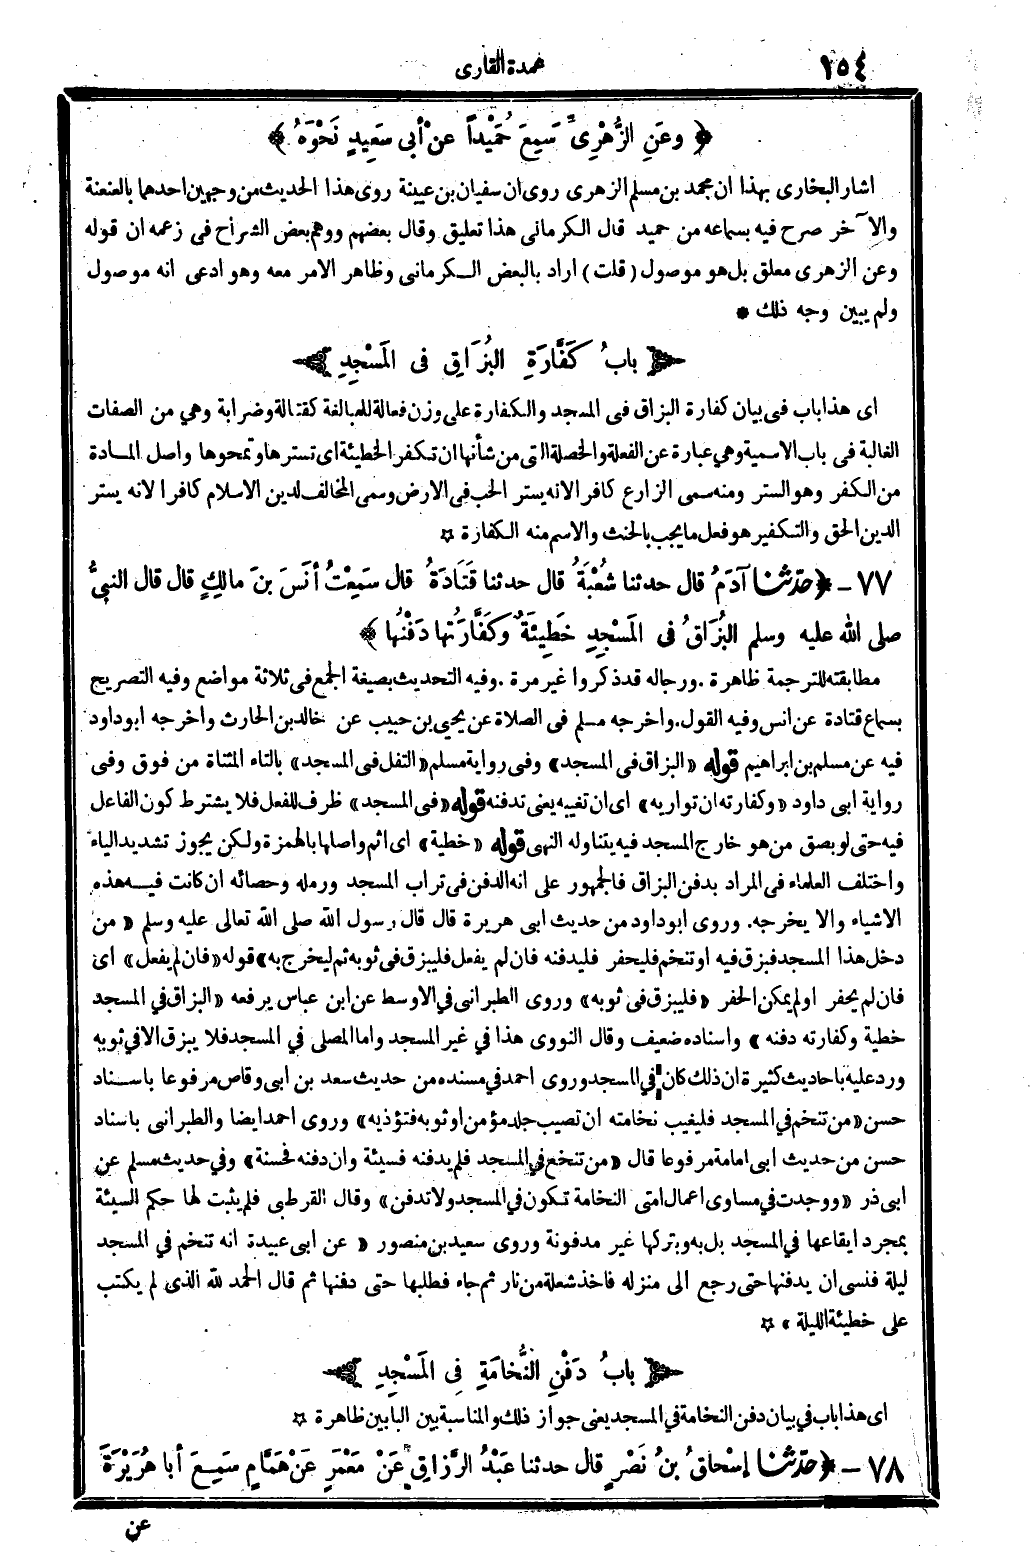 ١٥٤
عمدة القارى
﴿ وعَنِ الزُّهْرِىِّ سَمِعَ حُمَيْداً عنْ أبى سَعِيدٍ نَحْوَهُ ﴾
اشار البخارى بهذا ان محمد بن مسلم الزهرى روى ان سفيان بن عيينة روى هذا الحديث من وجهين احدهما بالعنعنة
والآخر صرح فيه بسماعه من حميد قال الكرمانى هذا تعليق وقال بعضهم ووهم بعض الشراح فى زعمه ان قوله
وعن الزهرى معلق بل هو موصول (قلت) اراد بالبعض الكرمانى وظاهر الامر معه وهو ادعى انه موصول
ولم يبين وجه ذلك *
﴿ بابُ كَفَّارَةِ البُزَاقِ فى المَسْجِدِ ﴾
اى هذا باب فى بيان كفارة البزاق فى المسجد والكفارة على وزن فعالة للمبالغة كقتالة وضرابة وهي من الصفات
الغالبة فى باب الاسمية وهي عبارة عن الفعلة والخصلة التى من شأنها ان تكفر الخطيئة اى تسترها وتمحوها واصل المادة
من الكفر وهو الستر ومنه سمى الزارع كافرا لانه يستر الحب فى الارض وسمى المخالف لدين الاسلام كافرا لانه يستر
الدين الحق والتكفير هو فعل ما يجب بالحنث والاسم منه الكفارة ☆
٧٧ - ﴿ حَدَّثَنَا آدَمُ قال حدثنا شُعْبَةُ قال حدثنا قَتَادَةُ قال سَمِعْتُ أنَسَ بنَ مالِكٍ قال قال النبىُّ
صلى الله عليه وسلم البُزَاقُ فى المَسْجِدِ خَطِيئَةٌ وكَفَّارَتُها دَفْنُها ﴾
مطابقته للترجمة ظاهرة . ورجاله قد ذكروا غير مرة . وفيه التحديث بصيغة الجمع فى ثلاثة مواضع وفيه التصريح
بسماع قتادة عن انس وفيه القول . واخرجه مسلم فى الصلاة عن يحيى بن حبيب عن خالد بن الحارث واخرجه ابو داود
فيه عن مسلم بن ابراهيم قوله «البزاق فى المسجد» وفى رواية مسلم «التفل فى المسجد» بالتاء المثناة من فوق وفى
رواية ابى داود «وكفارته ان تواريه» اى ان تغيبه يعنى تدفنه قوله «فى المسجد» ظرف للفعل فلا يشترط كون الفاعل
فيه حتى لو بصق من هو خارج المسجد فيه يتناوله النهى قوله «خطية» اى اثم واصلها بالهمزة ولكن يجوز تشديد الياء
واختلف العلماء فى المراد بدفن البزاق فالجمهور على انه الدفن فى تراب المسجد ورمله وحصائه ان كانت فيه هذه
الاشياء والا يخرجه. وروى ابو داود من حديث ابى هريرة قال قال رسول الله صلى الله تعالى عليه وسلم «من
دخل هذا المسجد فبزق فيه او تنخم فليحفر فليدفنه فان لم يفعل فليبزق فى ثوبه ثم ليخرج به» قوله «فان لم يفعل» اى
فان لم يحفر او لم يمكن الحفر «فليبزق فى ثوبه» وروى الطبرانى فى الاوسط عن ابن عباس يرفعه «البزاق فى المسجد
خطية وكفارته دفنه» واسناده ضعيف وقال النووى هذا في غير المسجد واما المصلى في المسجد فلا يبزق الا في ثوبه
ورد عليه باحاديث كثيرة ان ذلك كان في المسجد وروى احمد في مسنده من حديث سعد بن ابى وقاص مرفوعا باسناد
حسن «من تنخم في المسجد فليغيب نخامته ان تصيب جلد مؤمن او ثوبه فتؤذيه» وروى احمد ايضا والطبرانى باسناد
حسن من حديث ابى امامة مرفوعا قال «من تنخع في المسجد فلم يدفنه فسيئة وان دفنه فحسنة» وفي حديث مسلم عن
ابى ذر «ووجدت في مساوى اعمال امتى النخامة تكون في المسجد ولا تدفن» وقال القرطبى فلم يثبت لها حكم السيئة
بمجرد ايقاعها في المسجد بل به وبتركها غير مدفونة وروى سعيد بن منصور «عن ابى عبيدة انه تنخم في المسجد
ليلة فنسى ان يدفنها حتى رجع الى منزله فاخذ شعلة من نار ثم جاء فطلبها حتى دفنها ثم قال الحمد لله الذى لم يكتب
على خطيئة الليلة» ☆
﴿ بابُ دَفْنِ النُّخَامَةِ فِى المَسْجِدِ ﴾
اى هذا باب في بيان دفن النخامة في المسجد يعنى جواز ذلك والمناسبة بين البابين ظاهرة ☆
٧٨ - ﴿ حَدَّثَنَا إسْحاقُ بنُ نَصْرٍ قال حدثنا عَبْدُ الرَّزَّاقِ عَنْ مَعْمَرٍ عَنْ هَمَّامٍ سَمِعَ أبا هُرَيْرَةَ
عن